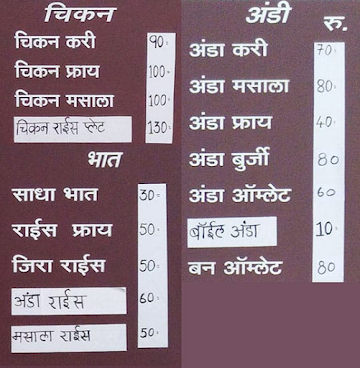 चिकन
चिकन करी 90=
चिकन फ्राय 100=
चिकन मसाला 100=
चिकन राईस प्लेट 130=
भात
साधा भात 30=
राईस फ्राय 50=
जिरा राईस 50=
अंडा राईस 60=
मसाला राईस 50=
अंडी रु.
अंडा करी 70=
अंडा मसाला 80=
अंडा फ्राय 40=
अंडा बुर्जी 80
अंडा ऑम्लेट 60
बॉईल अंडा 10=
बन ऑम्लेट 80